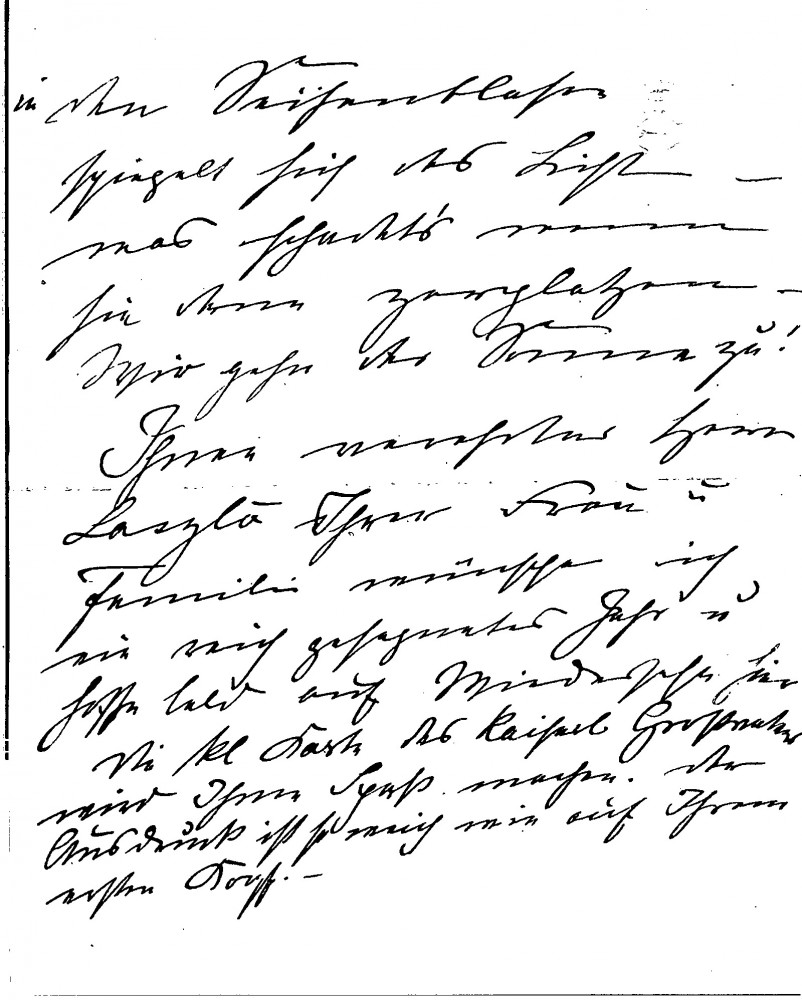 in den Seifenblasen
spiegelt sich das Licht –
was schadet's wenn
sie dann zerplatzen –
Wir gehn der Sonne zu!
Ihnen verehrter Herr
Laszlo Ihrer Frau u
Familie wünsche ich
ein reich gesegnetes Jahr u
hoffe bald auf Wiedersehn hier
Die kl Karte des Kaiserl Großvaters
wird Ihnen Spaß machen. der
Ausdruck ist so weich wie auf Ihrem
ersten Kopf. –